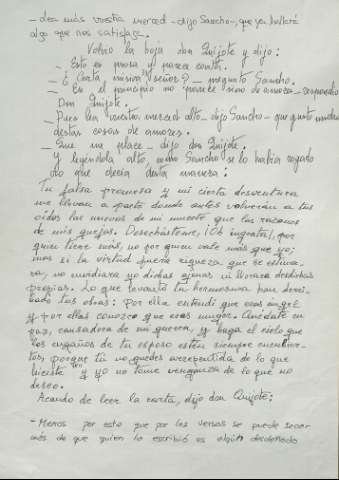 -Lea más vuestra merced -dijo Sancho-, que ya hallará
algo que nos satisfaga.
Volvió la hoja don Quijote y dijo:
- Esto es prosa y parece carta.
- ¿Carta misiva, señor? - preguntó Sancho.
- En el principio no parece sino de amores - respondió
Don Quijote.
- Pues lea vuestra merced alto - dijo Sancho - que gusto mucho
destas cosas de amores.
- Que me place - dijo don Quijote.
Y leyéndola alto, como Sancho se lo había rogado
vio que decía desta manera:
Tu falsa promesa y mi cierta desventura
me llevan a parte donde antes volverán a tus
oídos las nuevas de mi muerte que las razones
de mis quejas. Desechásteme, ¡Oh ingrata!, por
quien tiene más, no por quien vale más que yo;
mas si la virtud fuera riqueza que se estima-
ra, no envidiara yo dichas ajenas ni llorara desdichas
propias. Lo que levantó tu hermosura han derri-
bado tus obras: Por ella entendí que eras ángel
y por ellas conozco que eras mujer. Quédate en
paz, causadora de mi guerra, y haga el cielo que
los engaños de tu esposo estén siempre encubier-
tos, porque tú no quedes arrepentida de lo que
hiciste y yo no tome venganza de lo que no
deseo.
Acando de leer la carta, dijo don Quijote:
- Menos por esto que por los versos se puede sacar
más de que quien la escribió es algún desdeñado